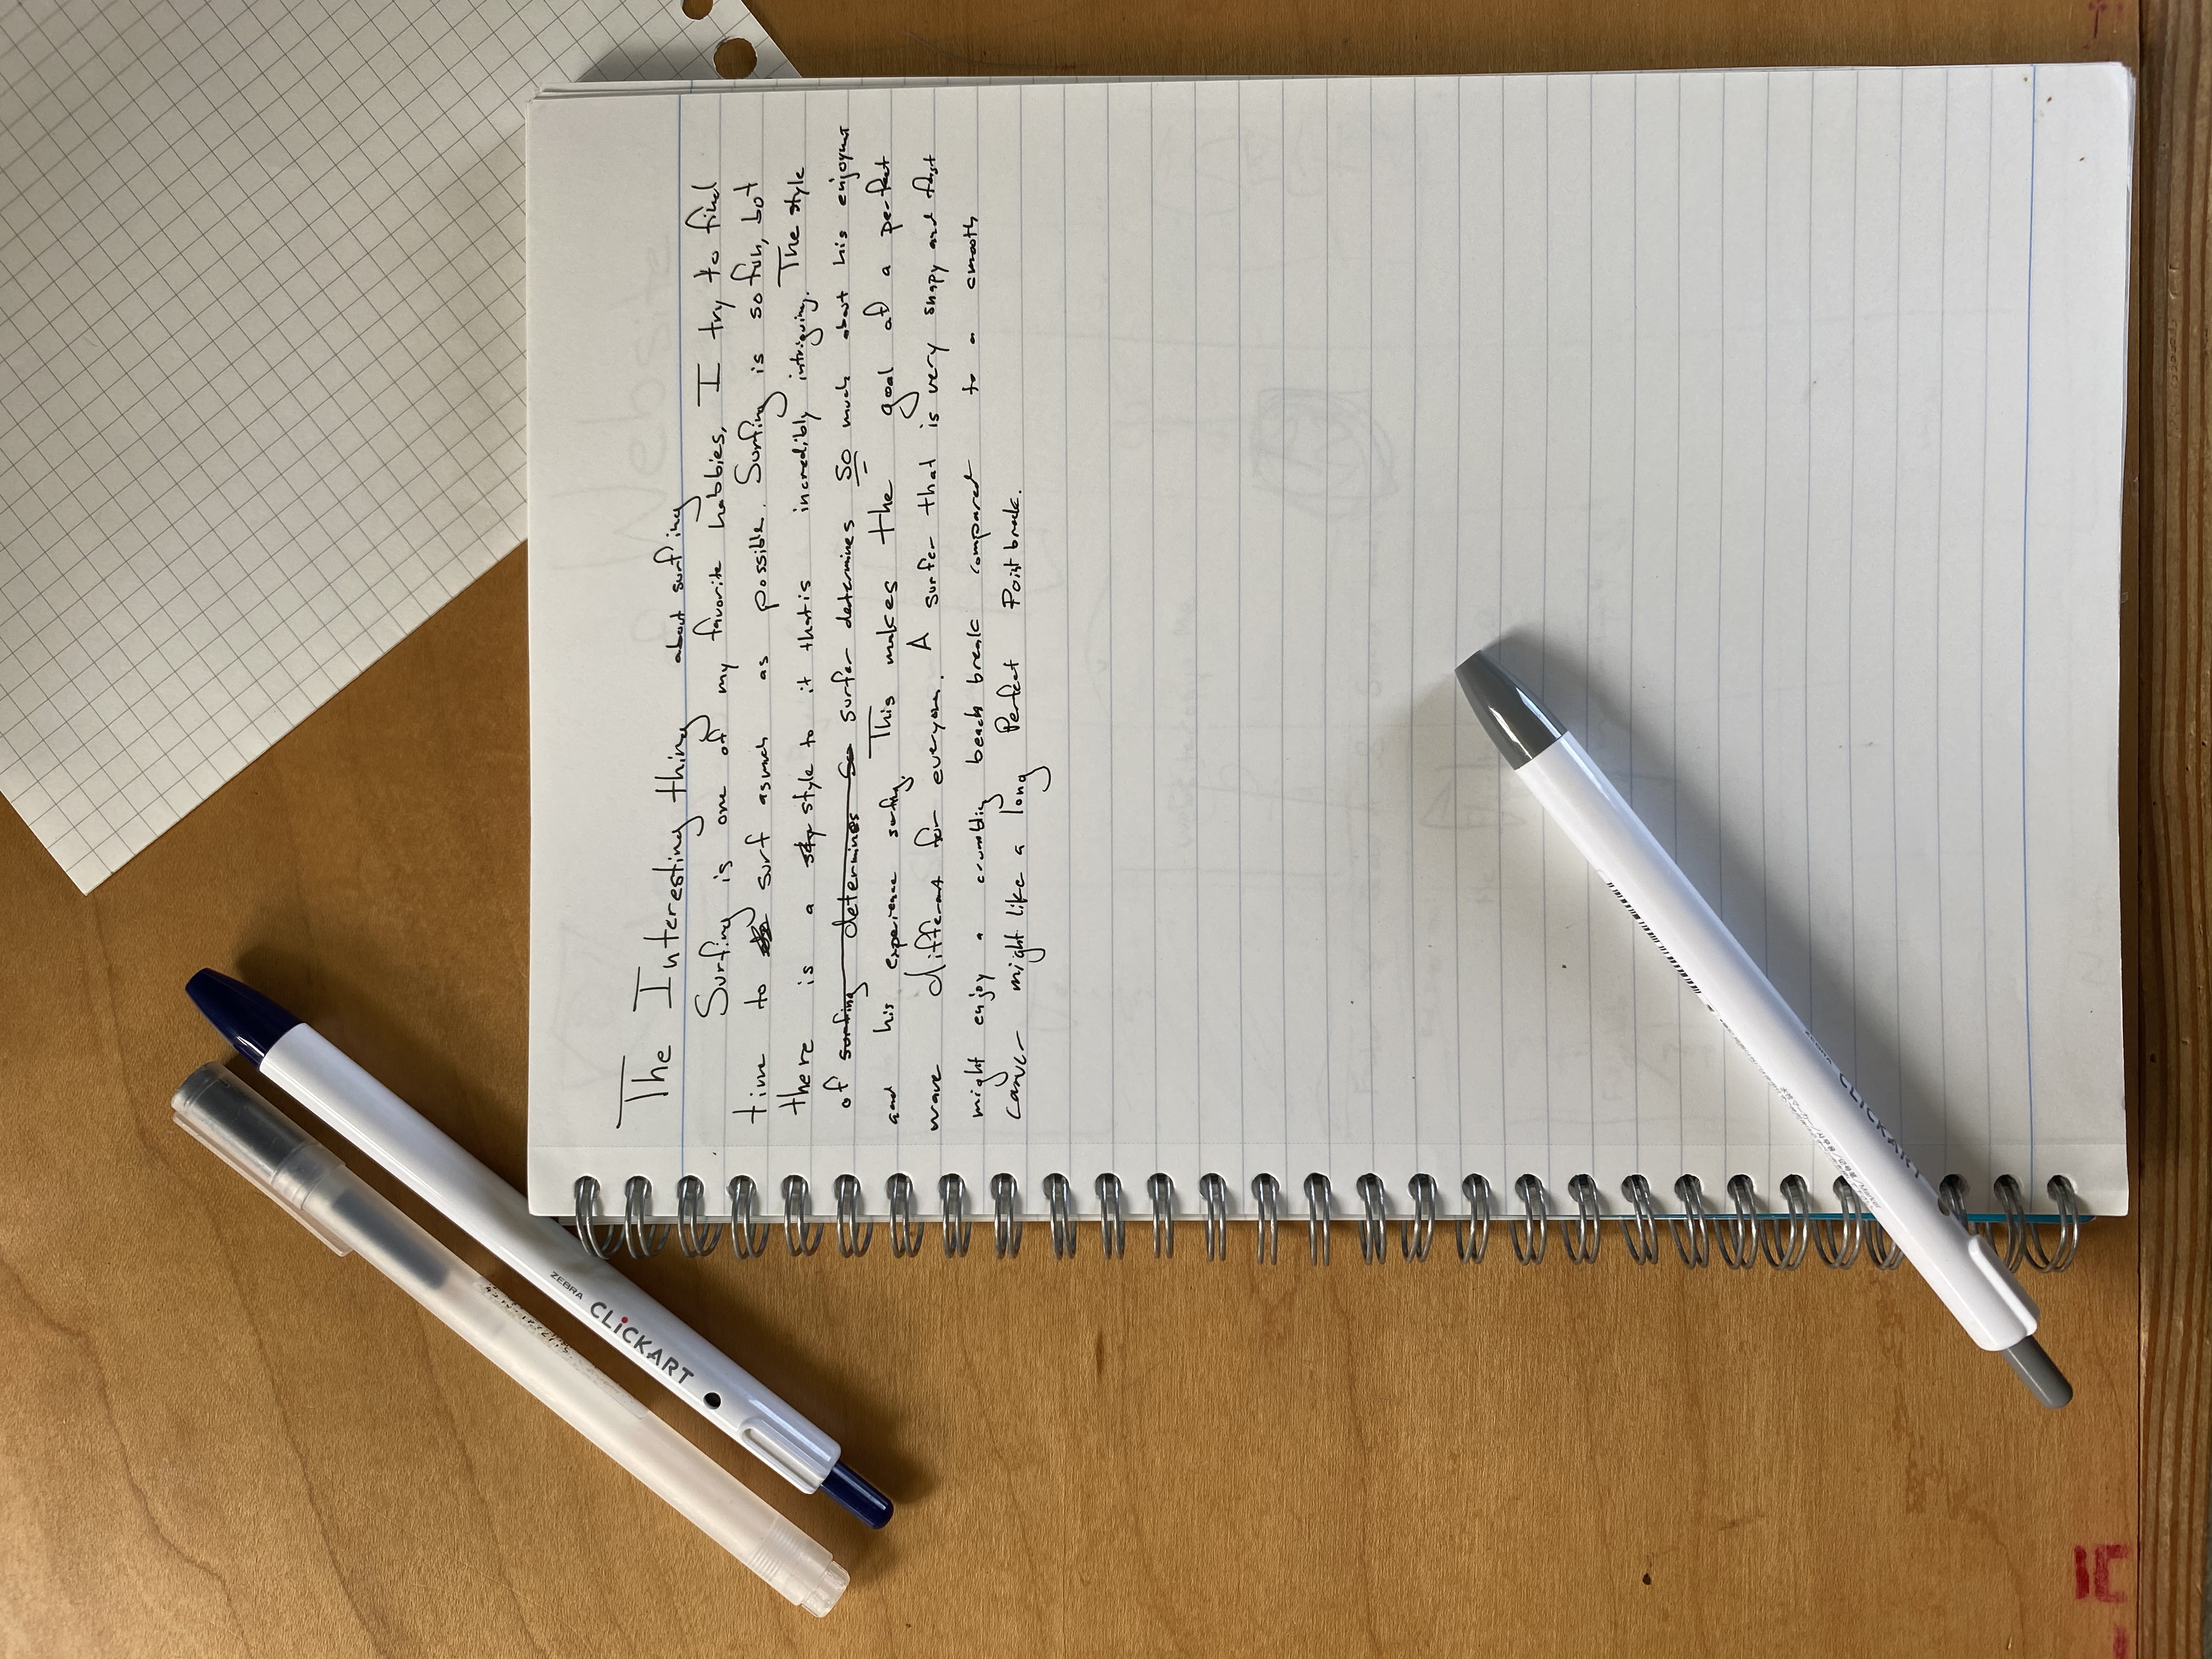 The Interesting thing about surfing
Surfing is one of my favorite hobbies, I try to find
time to surf asmuch as possible. Surfing is so fun, but
there is a sty style to it that is incredibly intriguing. The style
of surfing determines so surfer determines so much about his enjoyment
and his experience surfing. This makes the goal of a perfect
wave different for everyone. A surfer that is very snapy and fast
might enjoy a crumbling beach break compared to a smooth
carver might like a long Perfect Point break.
ZEBRA CLiCKART
CLiCKART
Website